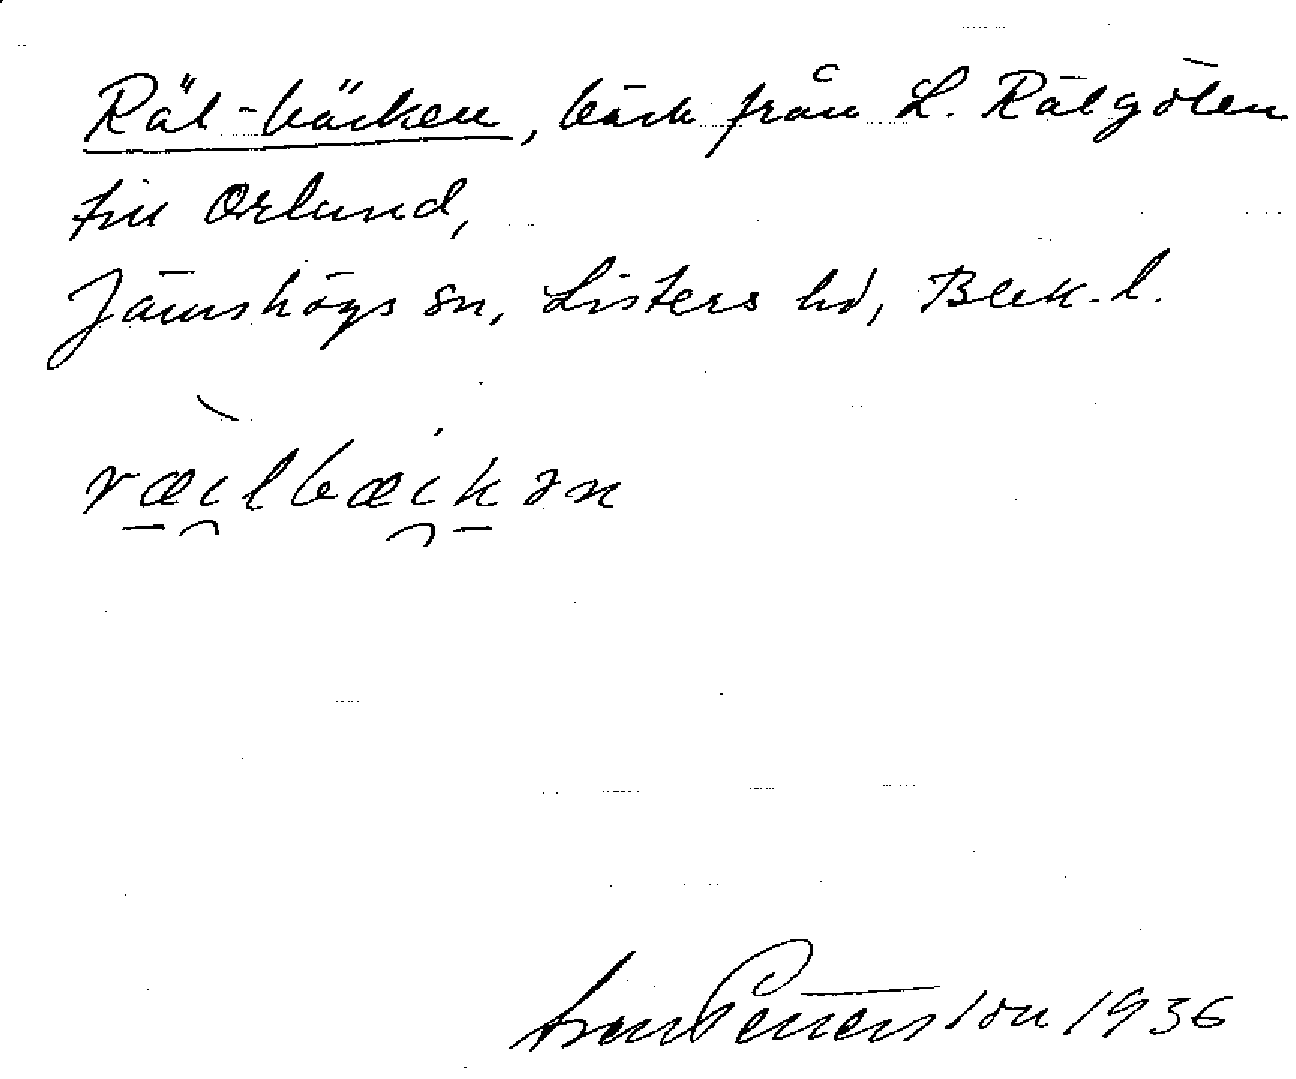 Räl-bäcken, bäck från L. Rälgölen
till Orlund,
Jämshögs sn, Listers hd, Blek. l.
ræilbæikən
Pettersson 1936